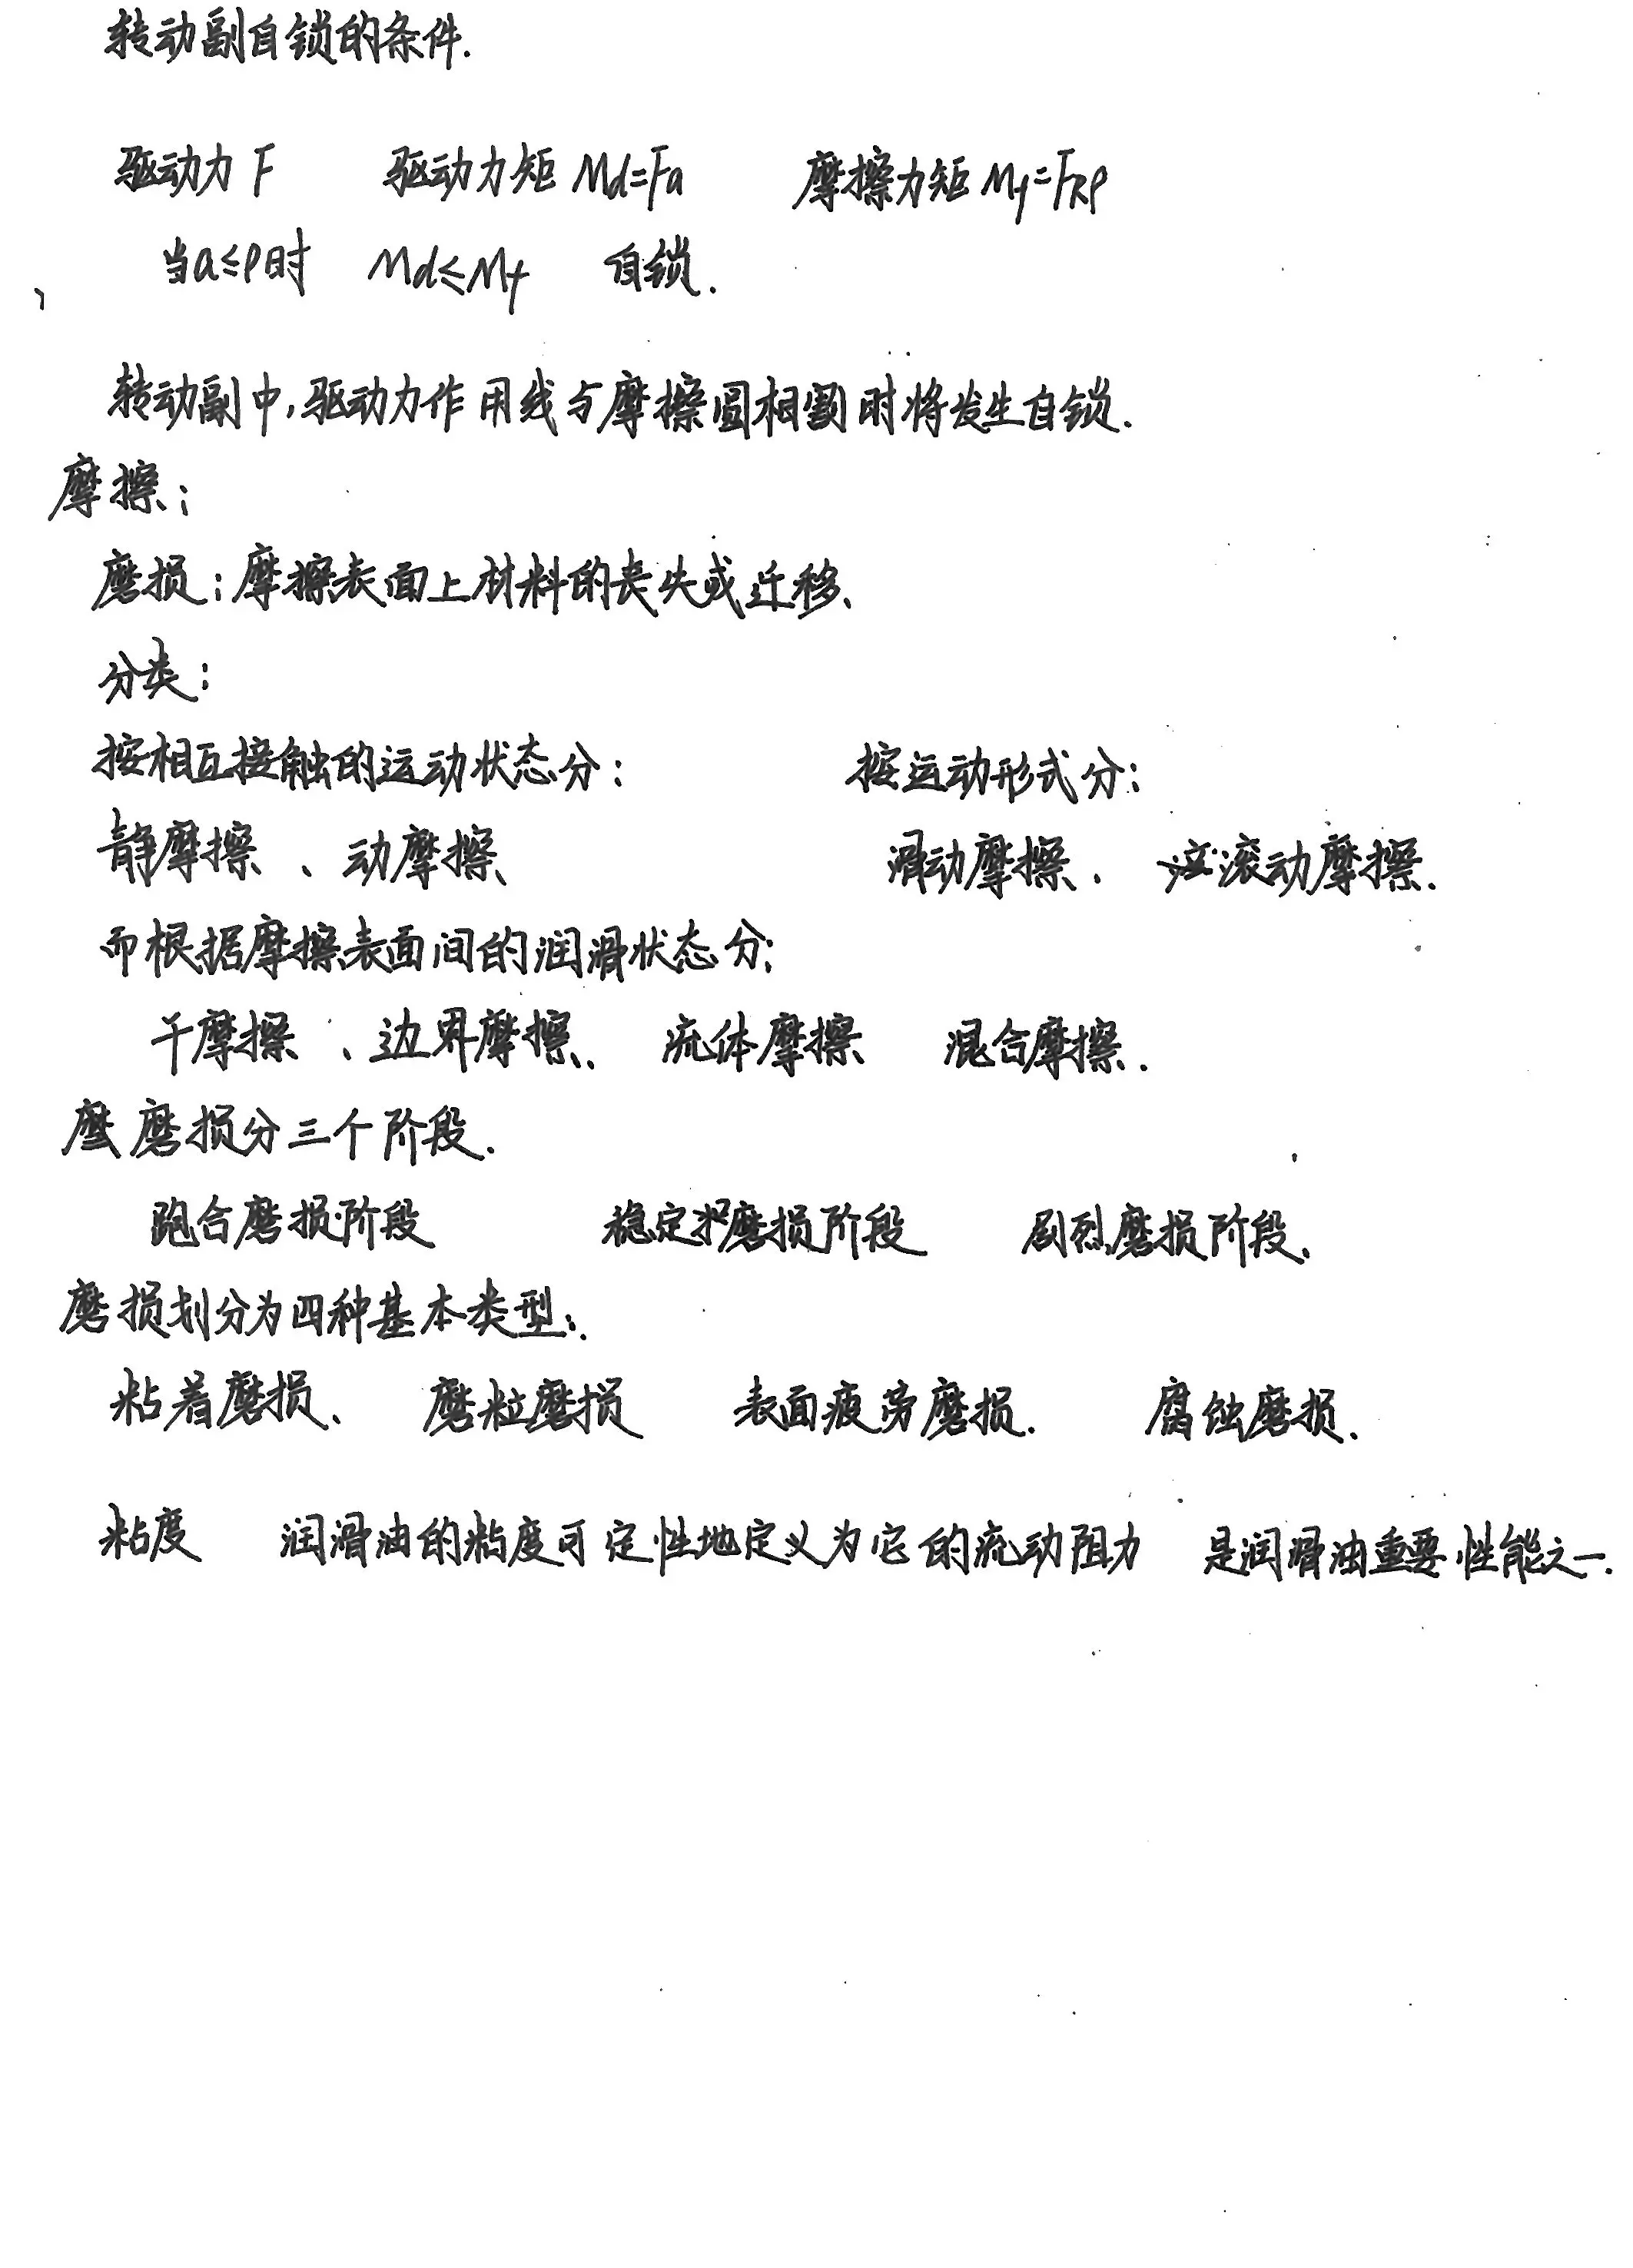 转动副自锁的条件.
驱动力 F 驱动力矩 Md=Fa 摩擦力矩 Mf=FRρ
当a≤ρ时 Md≤Mf 自锁.
转动副中,驱动力作用线与摩擦圆相割时将发生自锁.
摩擦:
磨损:摩擦表面上材料的丧失或迁移、
分类:
按相互接触的运动状态分: 按运动形式分:
静摩擦、动摩擦、 滑动摩擦、 滚动摩擦.
而根据摩擦表面间的润滑状态分:
干摩擦、边界摩擦、 流体摩擦 混合摩擦.
磨损分三个阶段.
跑合磨损阶段 稳定磨损阶段 剧烈磨损阶段、
磨损划分为四种基本类型:.
粘着磨损、 磨粒磨损 表面疲劳磨损. 腐蚀磨损.
粘度 润滑油的粘度可定性地定义为它的流动阻力 是润滑油重要性能之一.